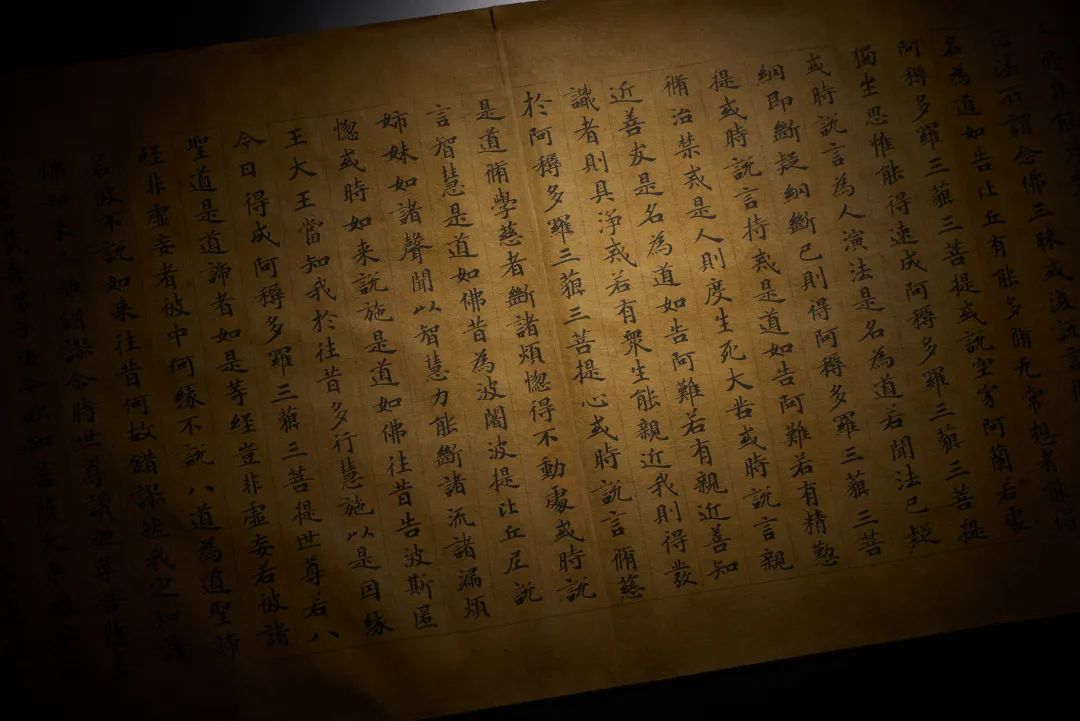 正法所謂念佛三昧或復說言
名為道如告比丘有能多脩无常想者能得
阿耨多羅三藐三菩提或說空寂阿蘭若處
獨坐思惟能得速成阿耨多羅三藐三菩提
或時說言為人演法是名為道若聞法已疑
網即斷疑網斷已則得阿耨多羅三藐三菩
提或時說言持戒是道如告阿難若有精懃
脩治禁戒是人則度生死大苦或時說言親
近善友是名為道如告阿難若有親近善知
識者則具淨戒若有衆生能親近我則得發
於阿耨多羅三藐三菩提心或時說言脩慈
是道脩學慈者斷諸煩惱得不動處或時說
言智慧是道如佛昔為波闍波提比丘尼說
姉妹如諸聲聞以智慧力能斷諸流諸漏煩
惱或時如来說施是道如佛往昔告波斯匿
王大王當知我於往昔多行慧施以是因緣
今日得成阿耨多羅三藐三菩提世尊若八
聖道是道諦者如是等經豈非虛妄若彼諸
經非虛妄者彼中何緣不說八道為道聖諦
若彼不說如来往昔何故錯謬然我定知諸
佛如来久離錯謬尒時世尊讃迦葉菩薩善
哉善哉善男子汝今欲知菩薩大乘